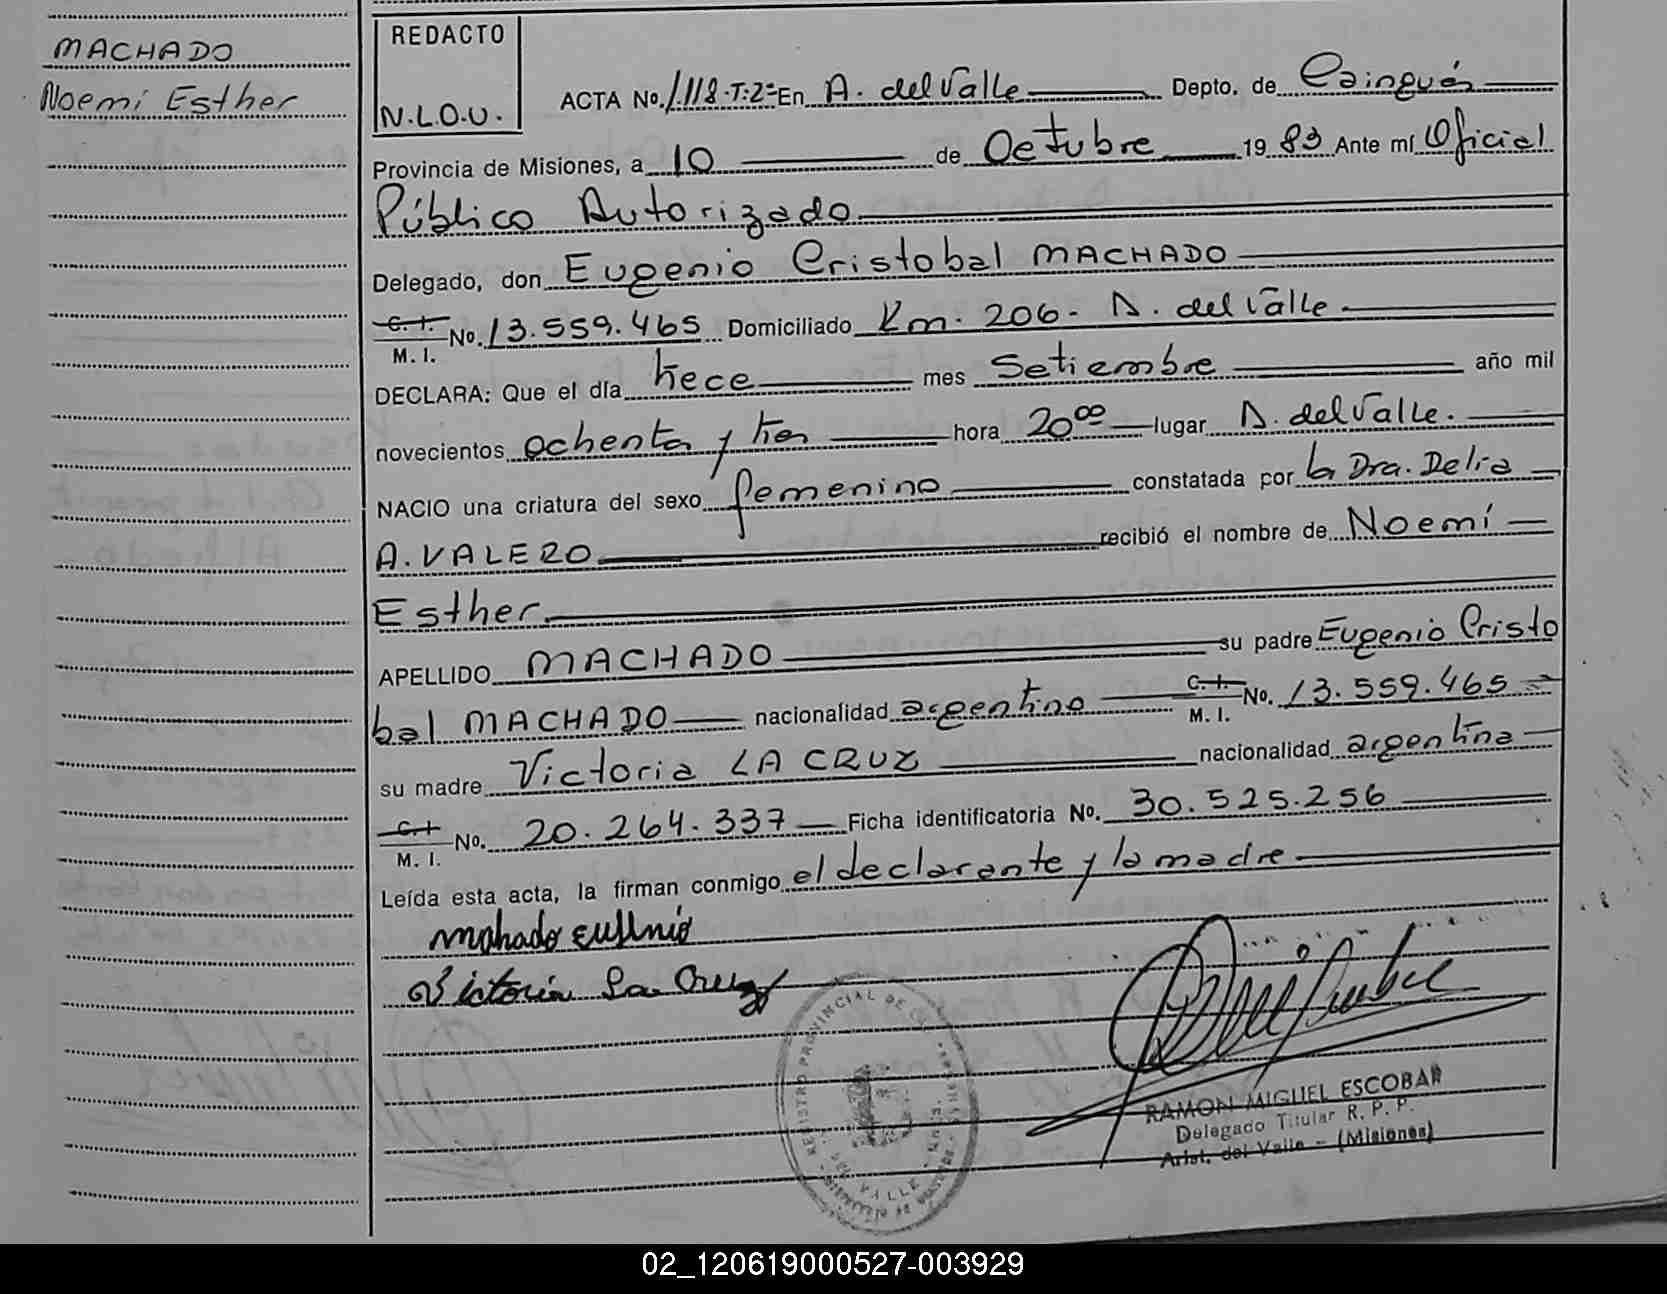 MACHADO
Noemí Esther
REDACTO
N.L.O.U.
ACTA No. 1.118.T:2º En A. del Valle Depto. de Cainguás
Provincia de Misiones, a 10 de Octubre 1983 Ante mí Oficial
Público Autorizado
Delegado, don Eugenio Cristobal MACHADO
C. I. M. I. No. 13.559.465 Domiciliado Km. 206. A. del Valle
DECLARA: Que el día trece mes Setiembre año mil
novecientos ochenta y tres hora 20 00 lugar A. del Valle.
NACIO una criatura del sexo femenino constatada por la Dra. Delia
A. VALERO recibió el nombre de Noemí
Esther.
APELLIDO MACHADO su padre Eugenio Cristo
bal MACHADO nacionalidad argentino C. I. M. I. No. 13.559.465
su madre Victoria LA CRUZ nacionalidad argentina
C. I. M. I. No. 20.264.337 Ficha identificatoria No. 30.525.256
Leída esta acta, la firman conmigo el declarante y la madre
Victoria La Cruz
REGISTRO PROVINCIAL DE
DEL VALLE
RAMON MIGUEL ESCOBAR
Delegado Titular R. P. P.
Arist. del Valle - (Misiones)
02_120619000527-003929